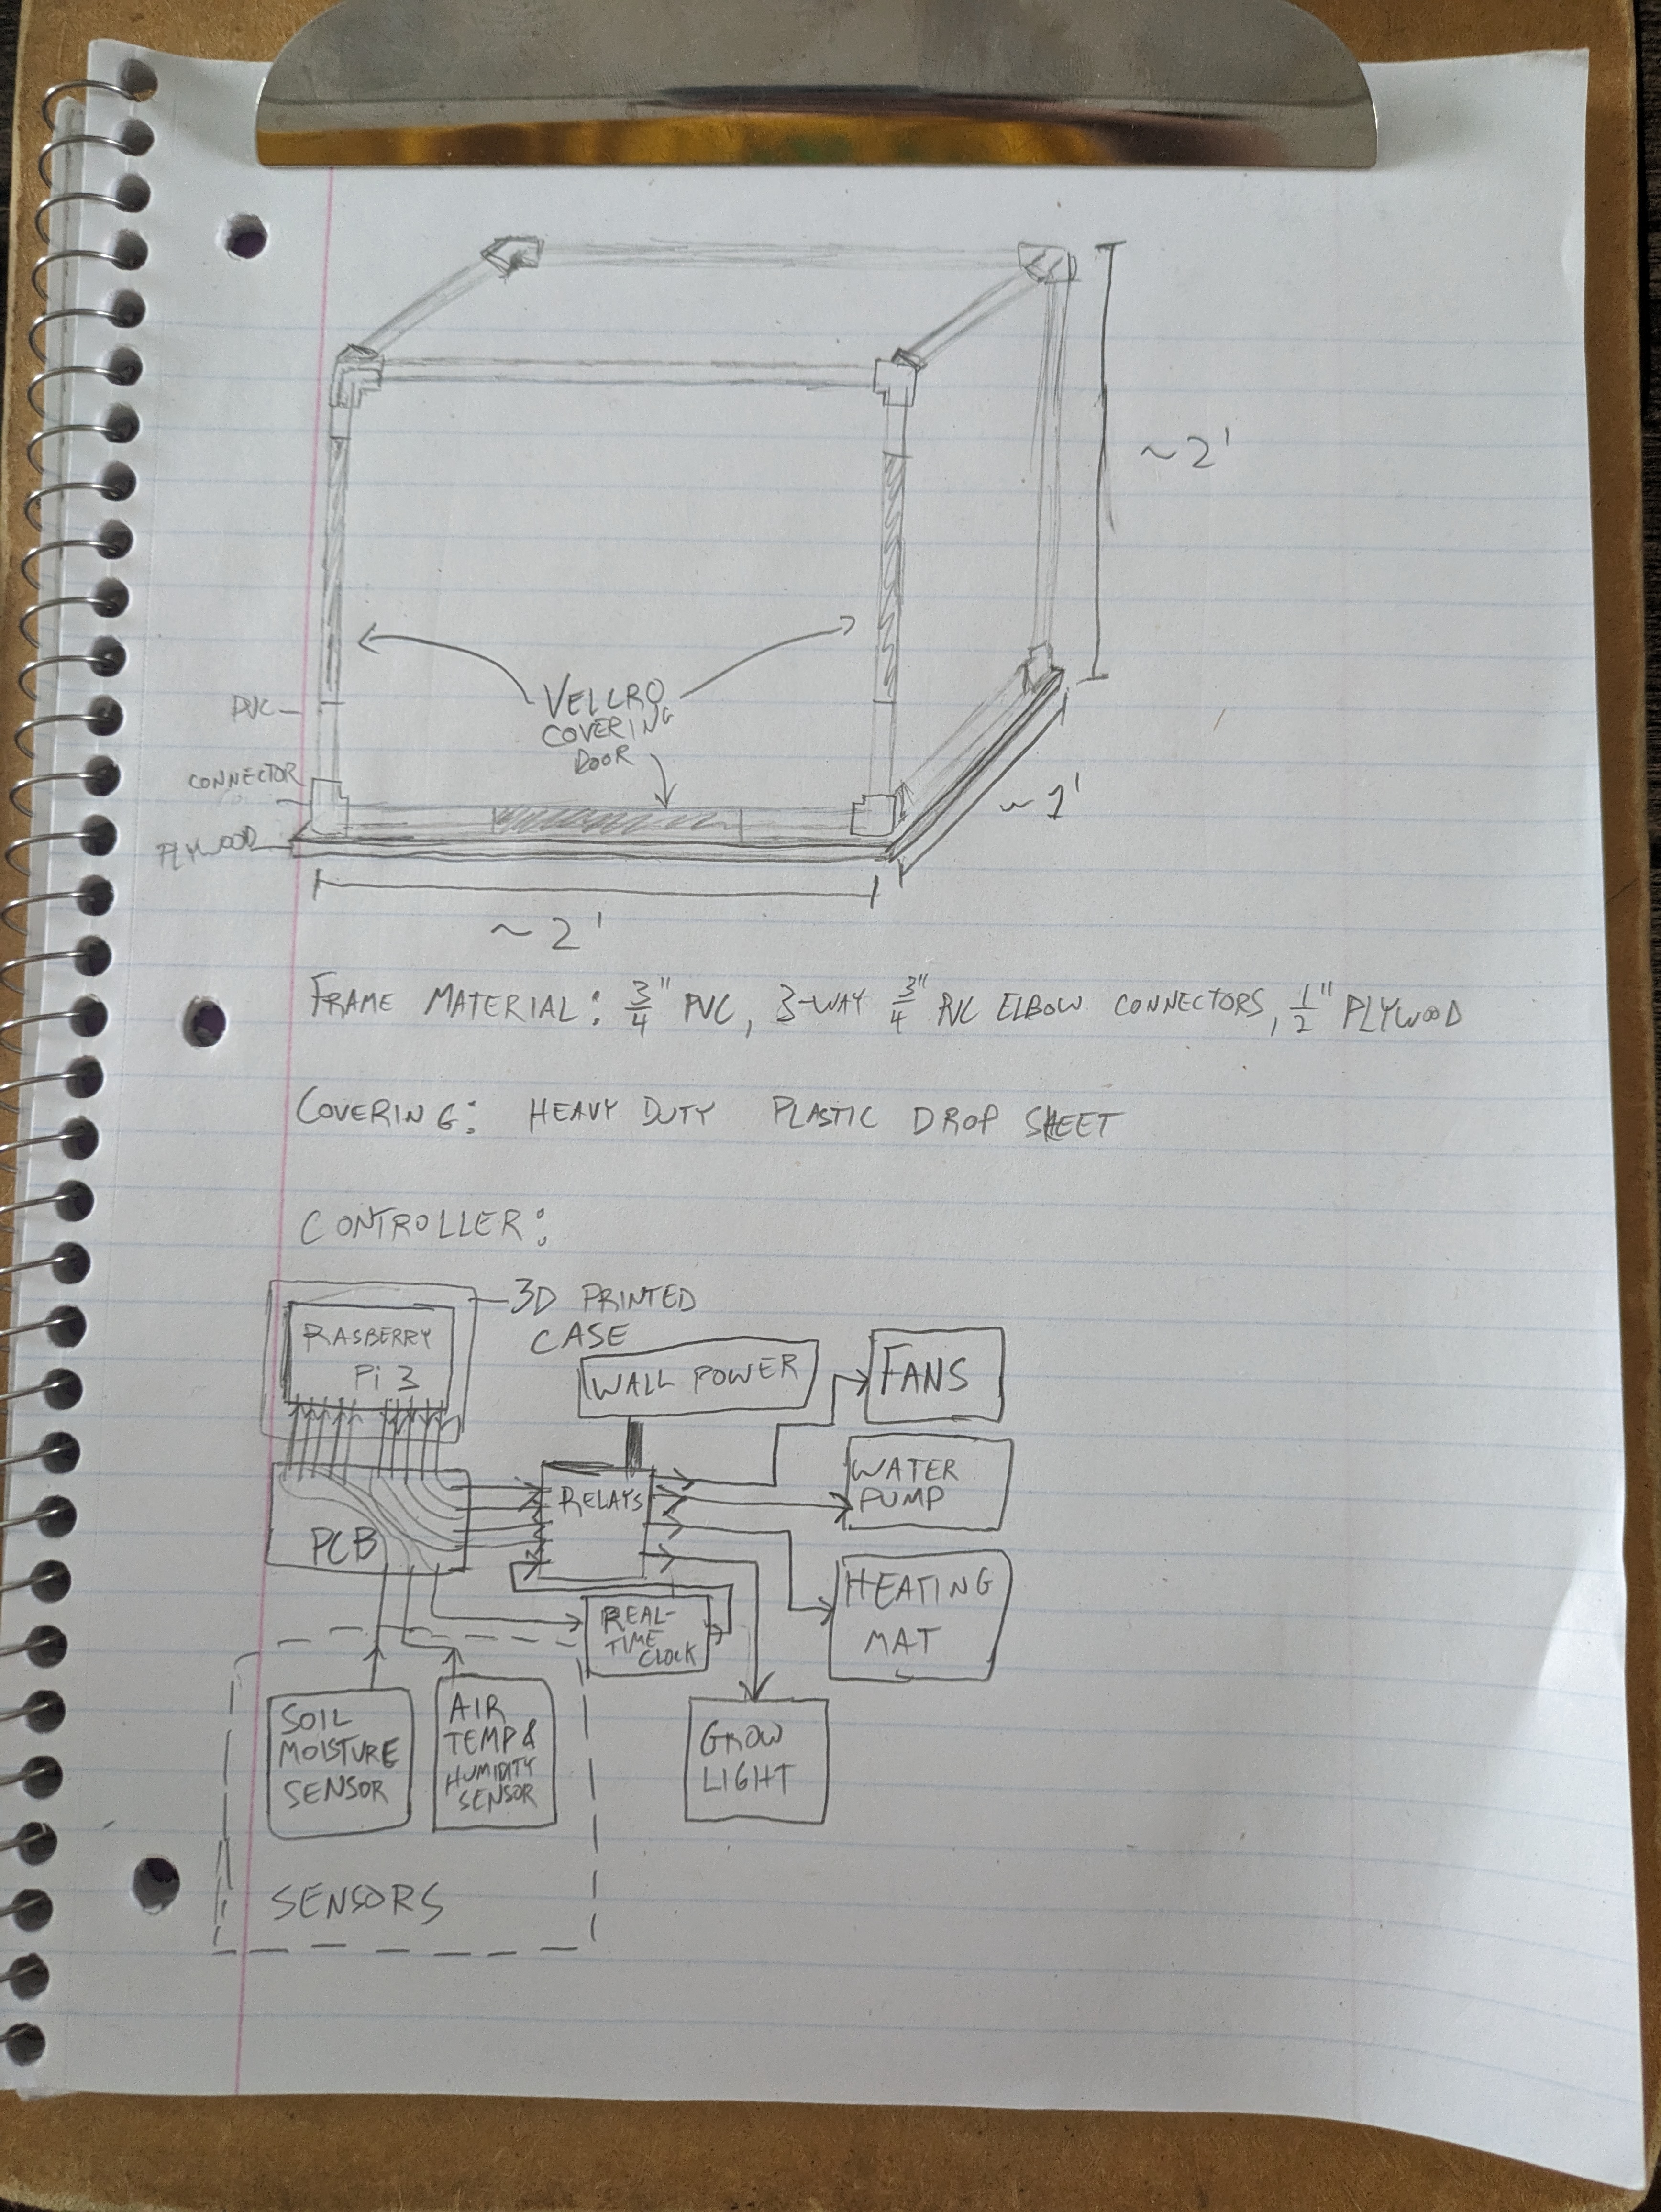 ~2'
VELCRO
COVERING
DOOR
PVC
CONNECTOR
PLYWOOD
~1'
~2'
FRAME MATERIAL: 3/4" PVC, 3-WAY 3/4" PVC ELBOW CONNECTORS, 1/2" PLYWOOD
COVERING: HEAVY DUTY PLASTIC DROP SHEET
CONTROLLER:
3D PRINTED
CASE
RASBERRY
Pi 3
WALL POWER
FANS
WATER
PUMP
RELAYS
PCB
HEATING
MAT
REAL-
TIME
CLOCK
SOIL
MOISTURE
SENSOR
AIR
TEMP &
HUMIDITY
SENSOR
GROW
LIGHT
SENSORS